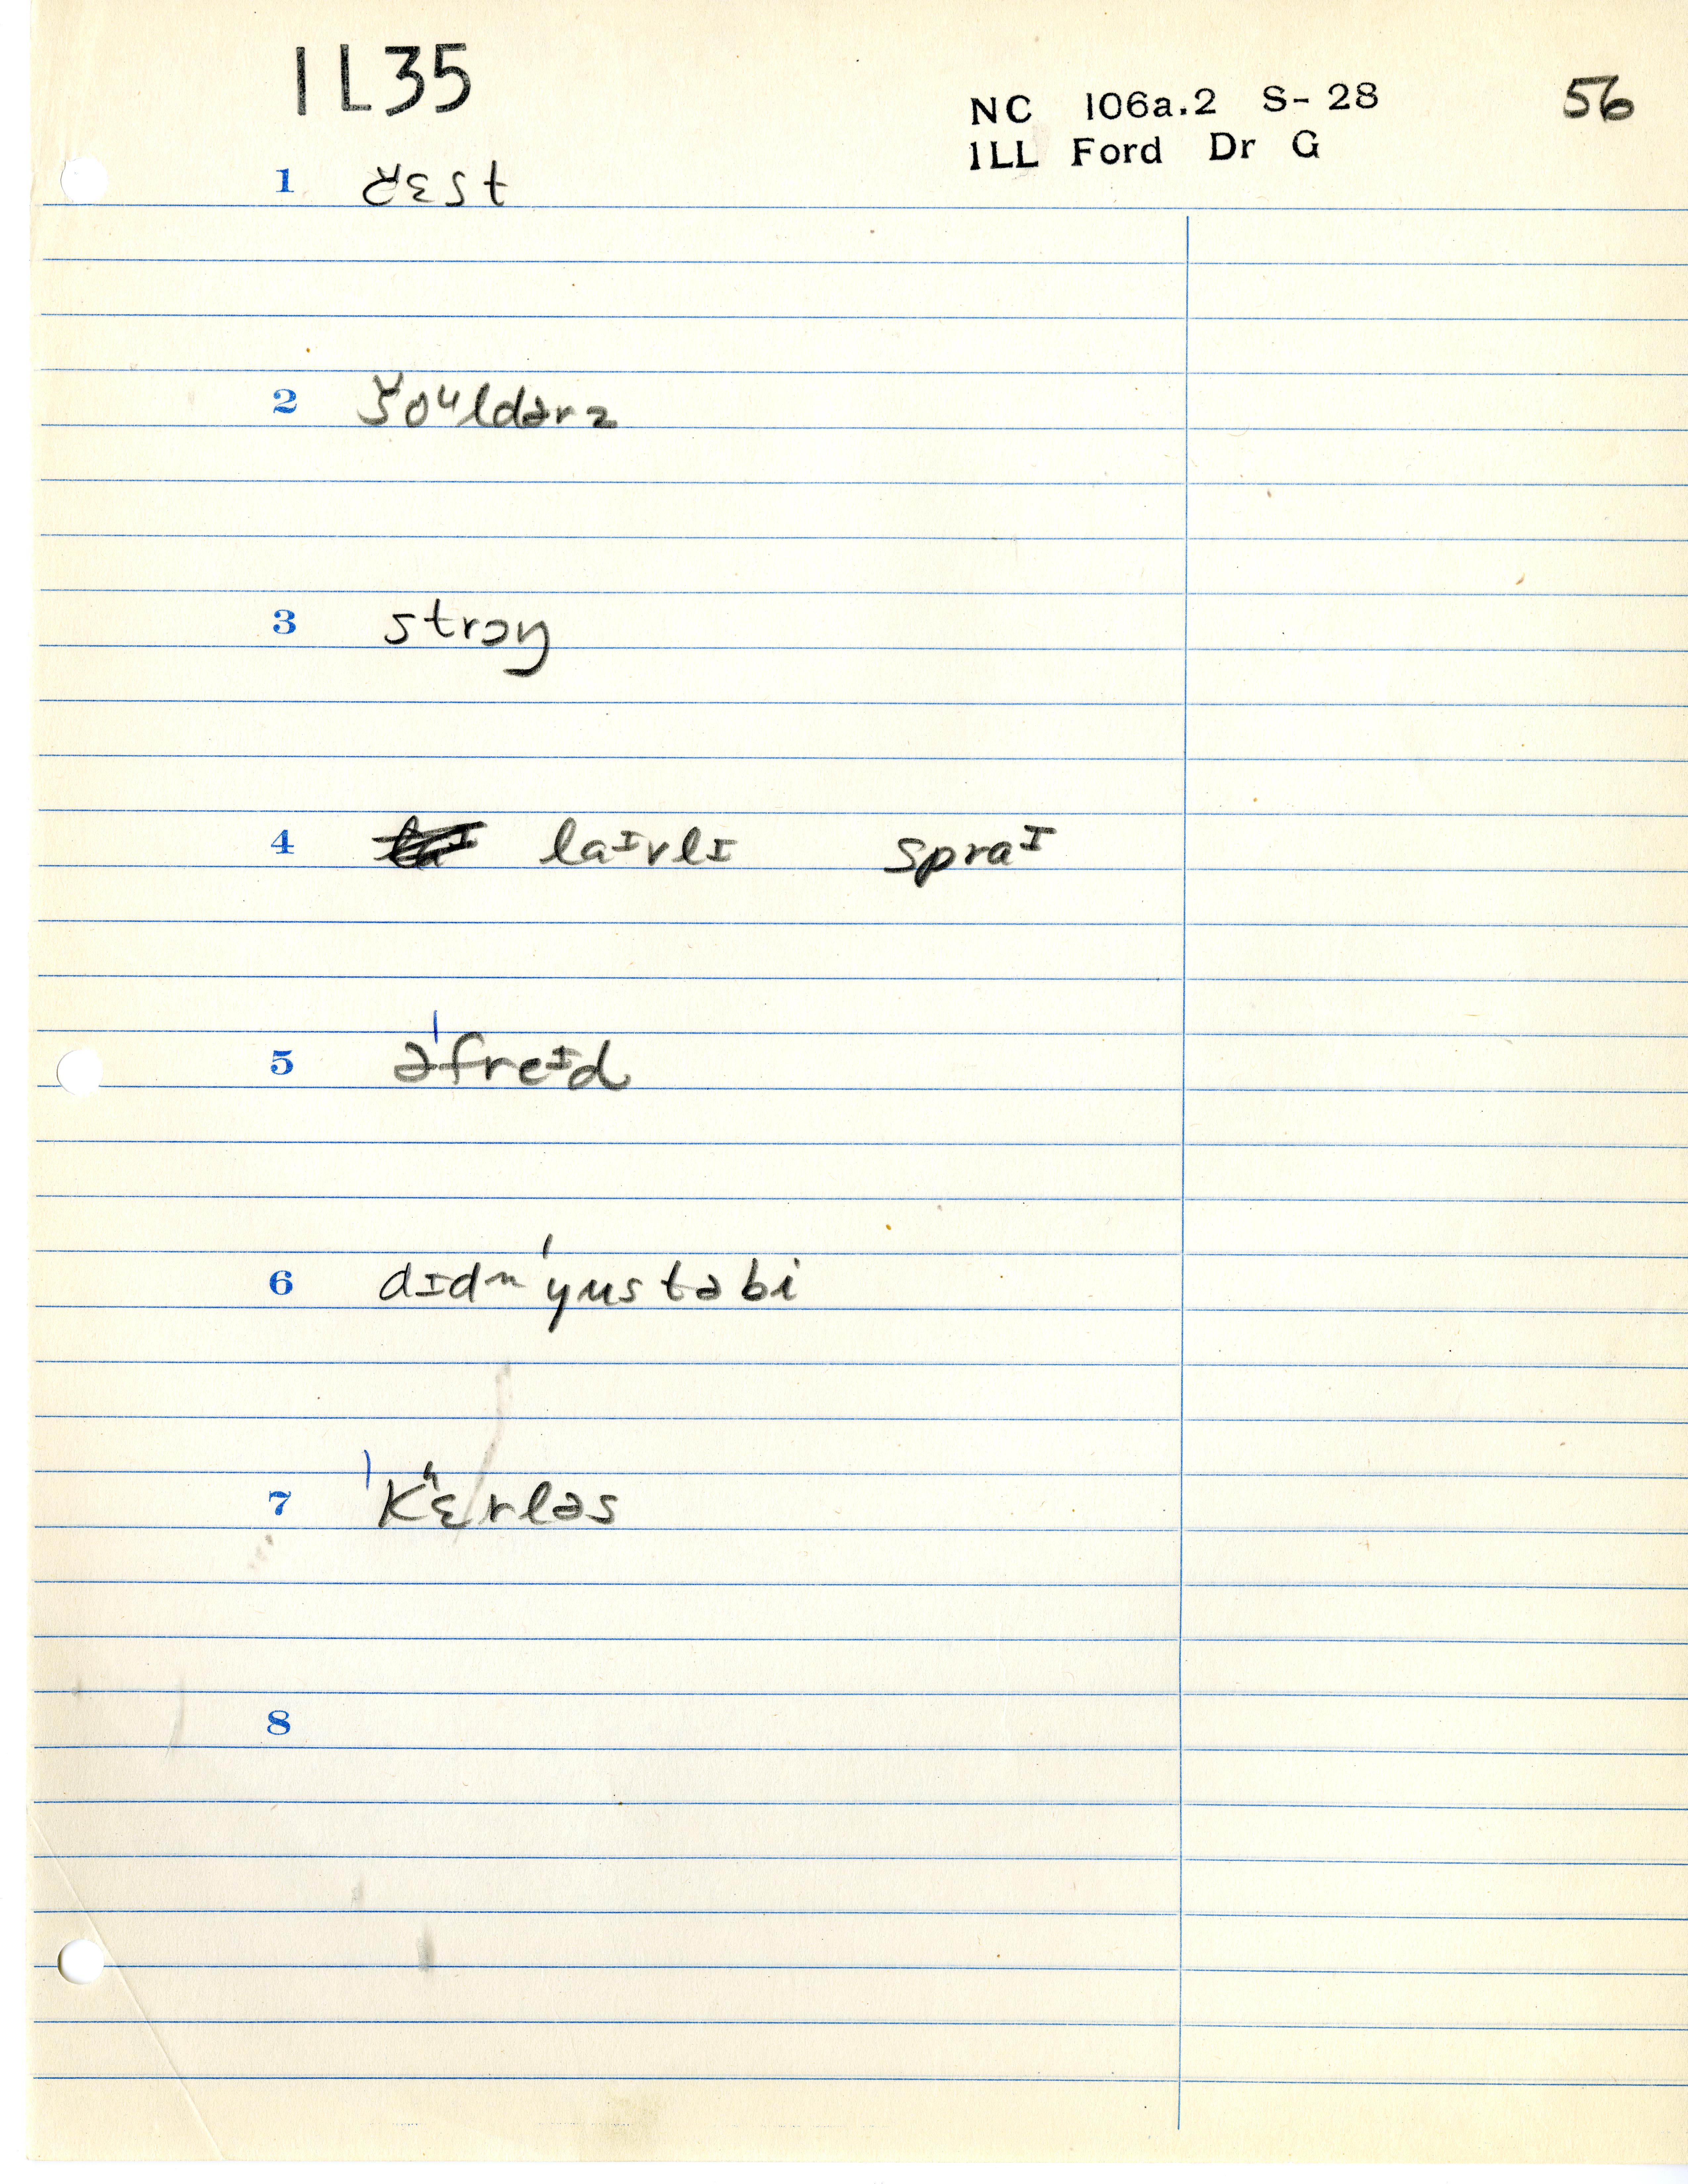 IL35
NC 106a.2 S-28 56
ILL Ford Dr G
1 čɛst
2 šoᵘldərz
3 strɔŋ
4 laᴵvlɪ spraᴵ
5 ə'freᴵd
6 dɪdn 'yustəbi
7 'kʰɛrləs
8